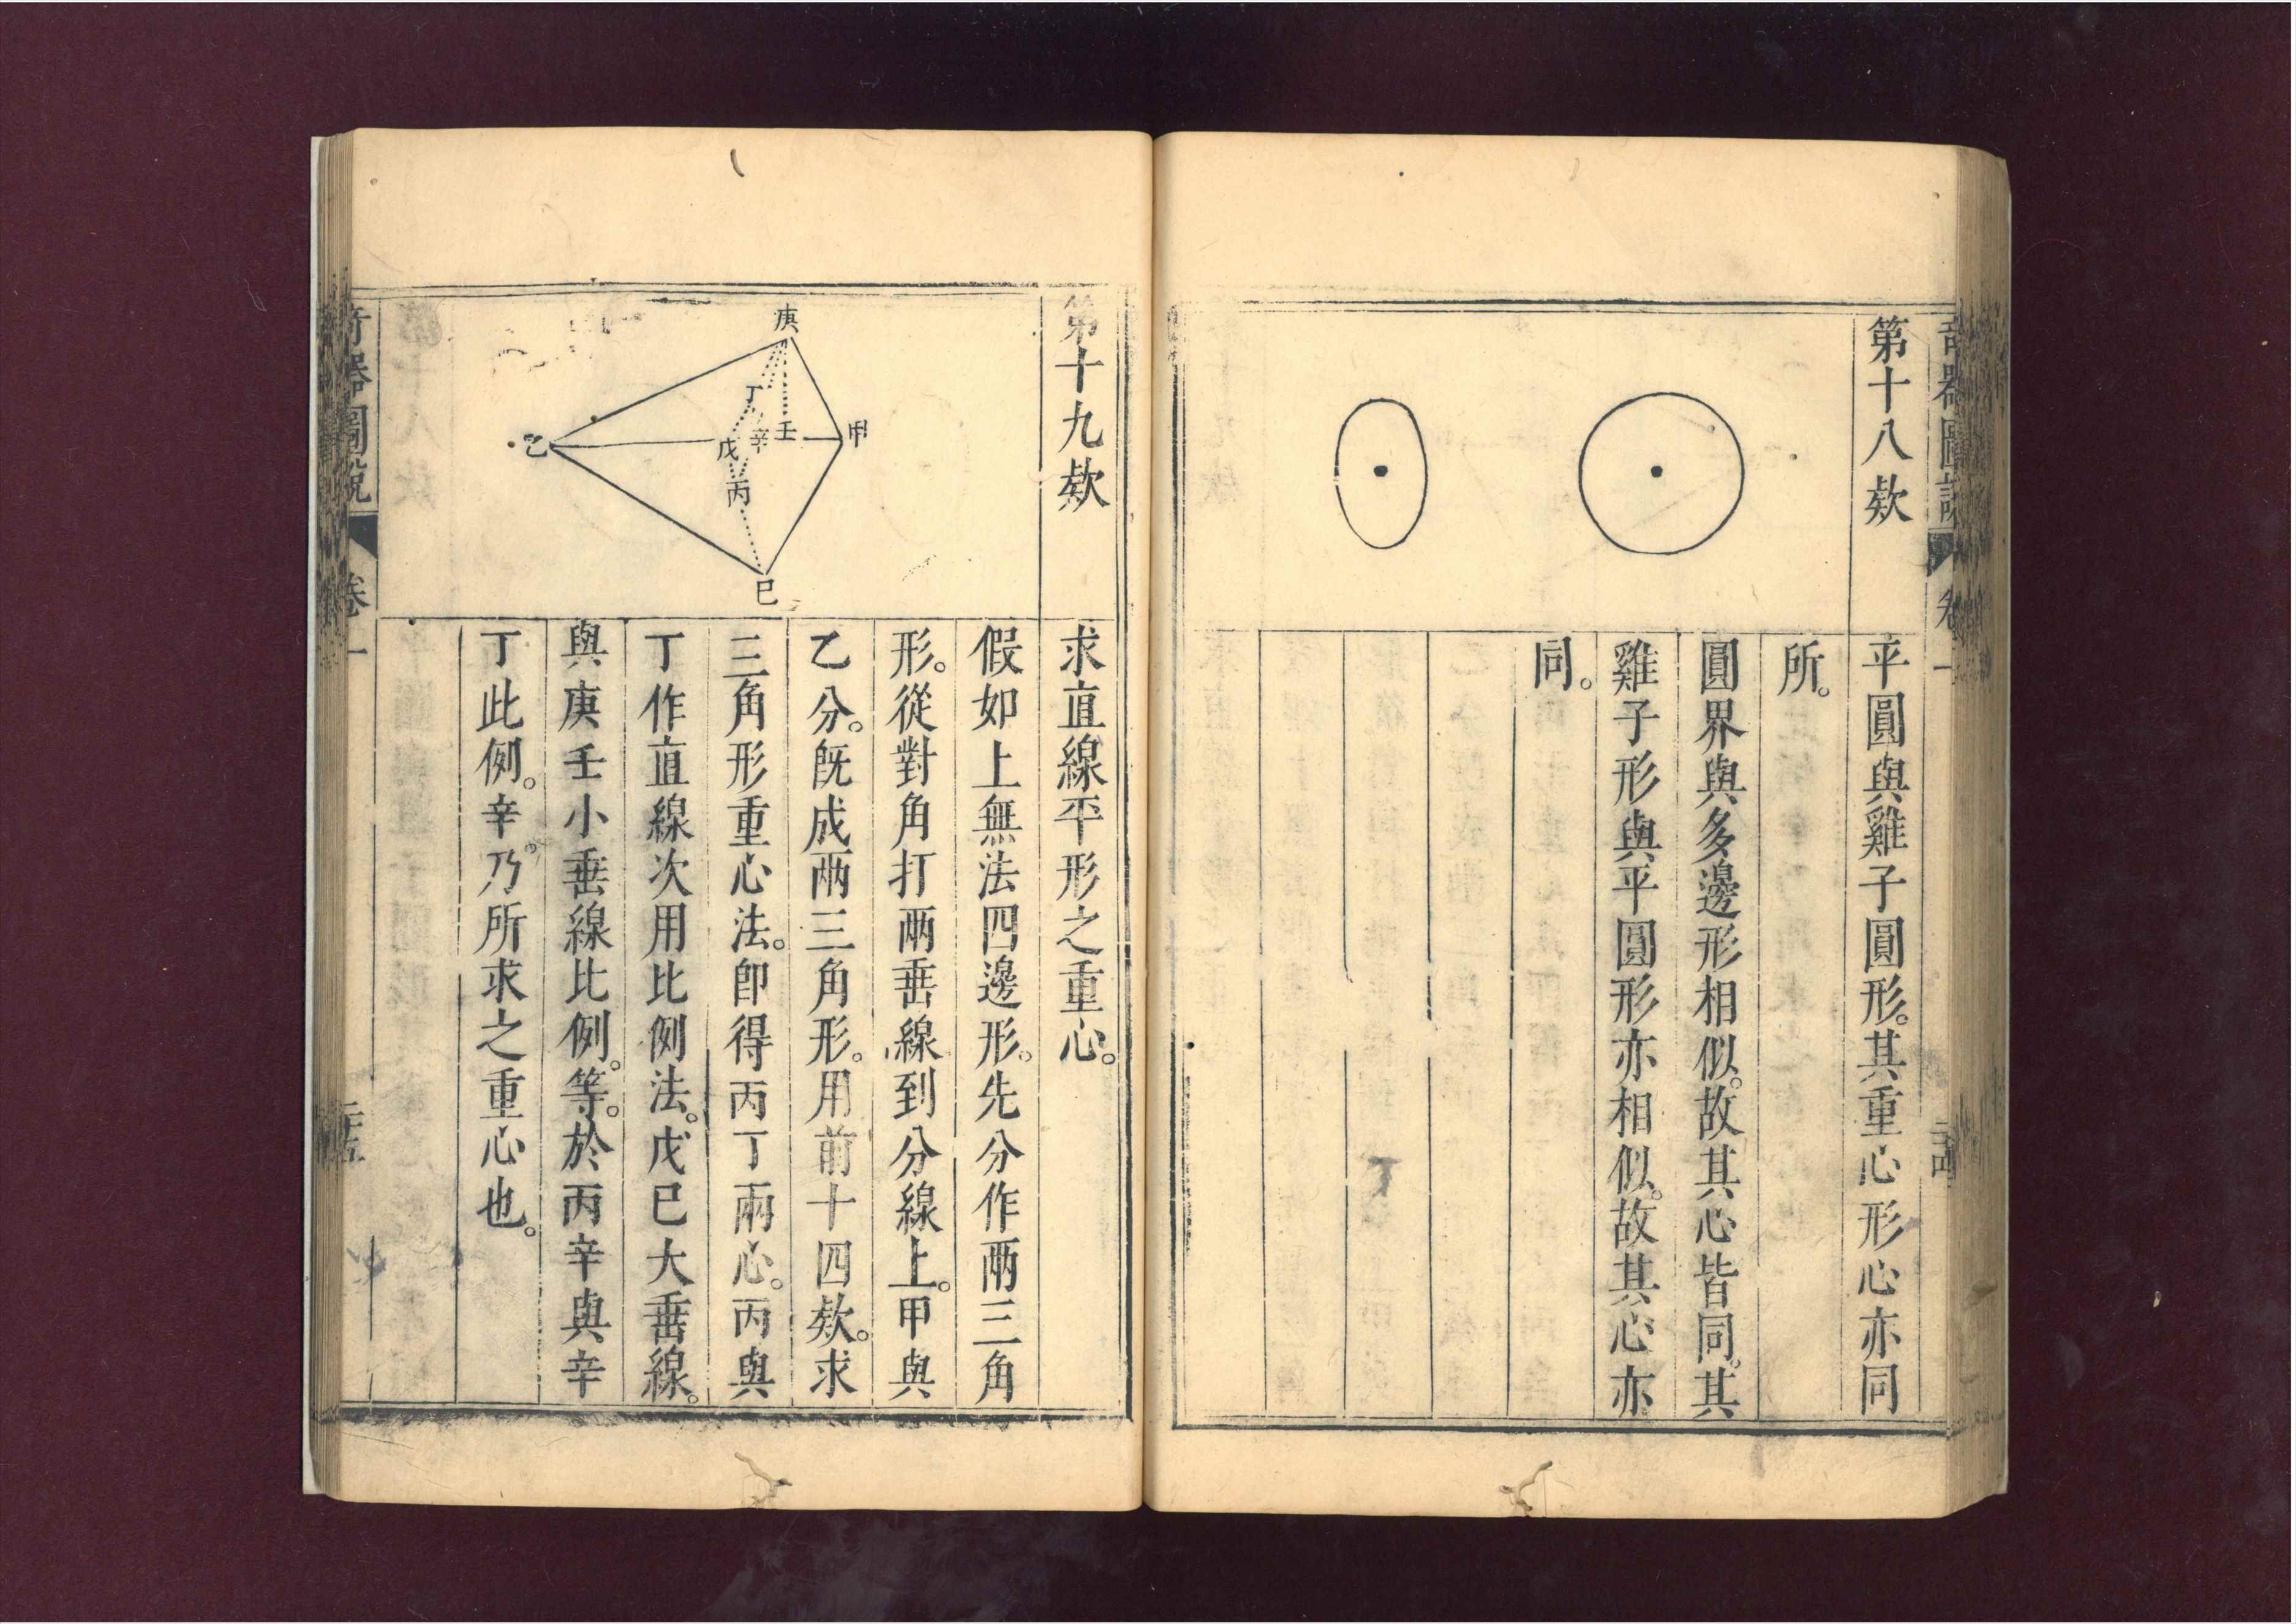 奇器圖說
卷一
第十八欵
平圓與雞子圓形。其重心形心亦同
所。
圓界與多邊形相似。故其心皆同。其
雞子形與平圓形亦相似。故其心亦
同。
第十九欵
庚
丁
壬
辛
甲
戊
乙
丙
巳
求直線平形之重心。
假如上無法四邊形。先分作兩三角
形。從對角打兩垂線到分線上。甲與
乙分。既成兩三角形。用前十四欵。求
三角形重心法。卽得丙丁兩心。丙與
丁作直線次用比例法。戊巳大垂線。
與庚壬小垂線比例。等。於丙辛與辛
丁此例。辛。乃所求之重心也。
奇器圖說
卷一
二十五